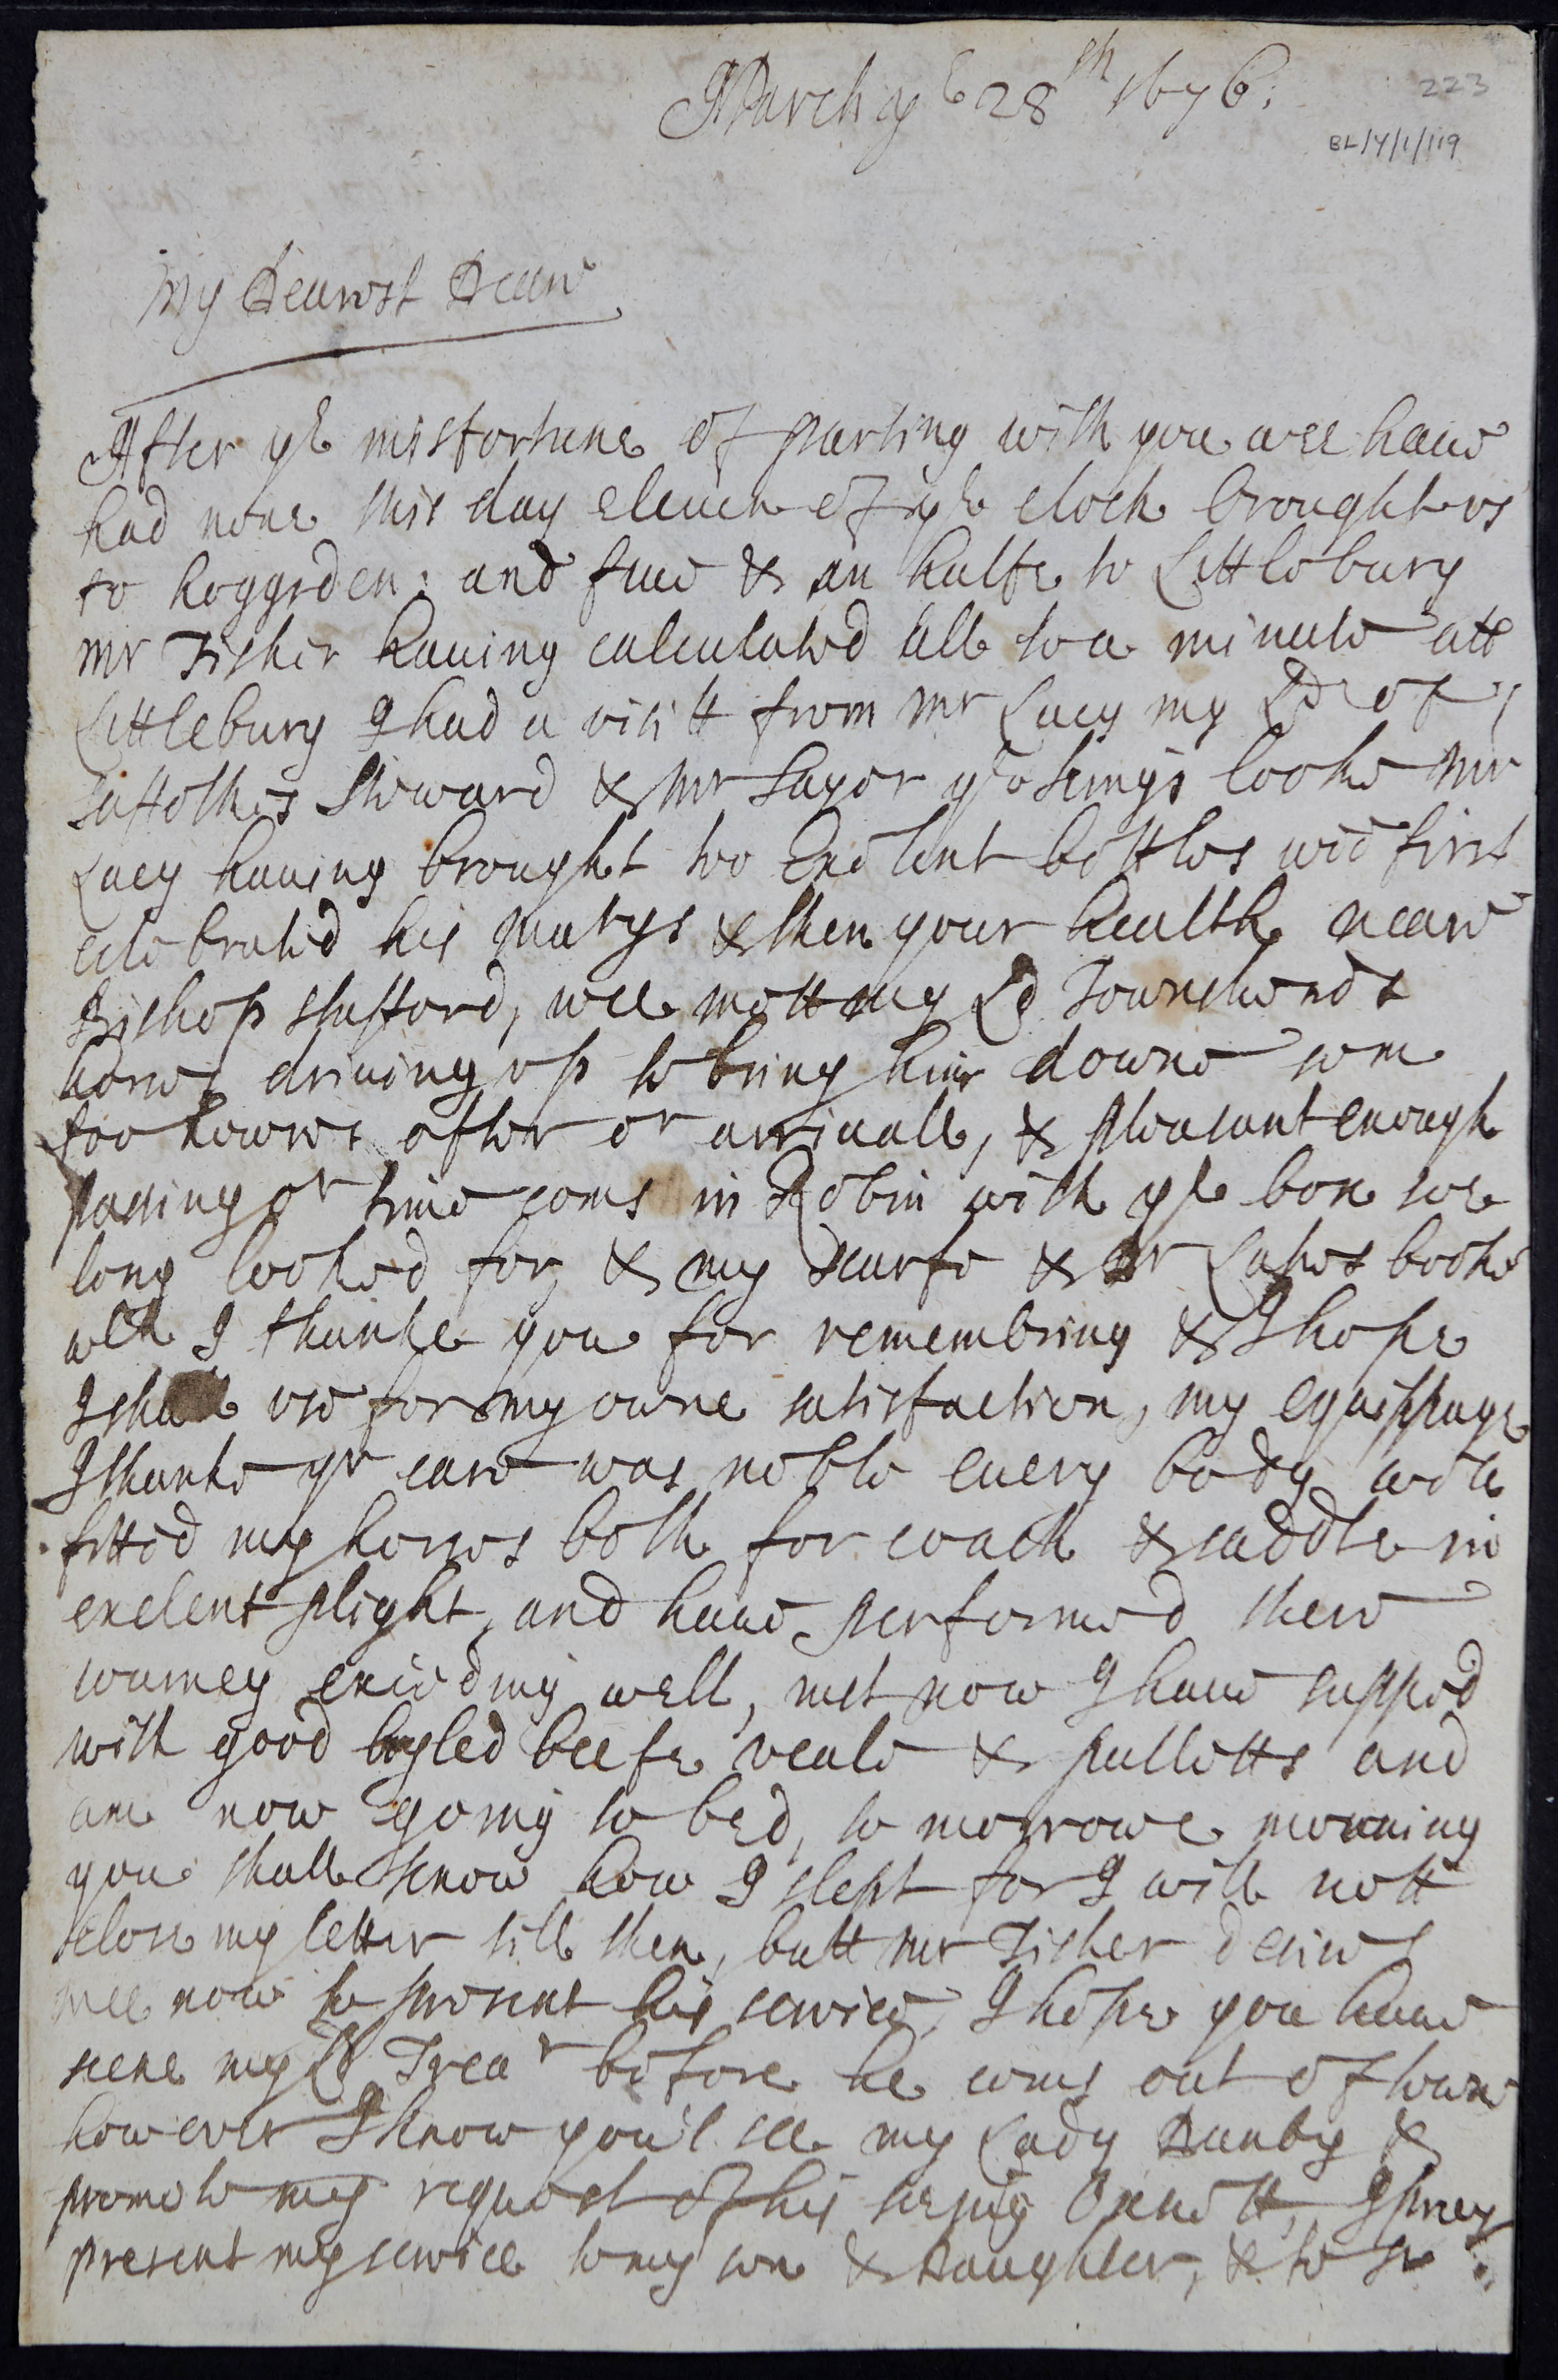 March ye 28th 1676:
223
BL/Y/1/119
My Dearest Deare
After ye misfortune of parting with you wee haue
had none this day eleuen of ye clock brought vs
to hoggsden: and fiue & an halfe to Littlebury
mr Fisher hauing calculated all to a minute att
Littlebury I had a visitt from mr Lucy my Ld of
Suffolkes steward & mr Sayer ye kings cooke mr
Lucy hauing brought two Exelent bottles wee first
celebrated his Matys & then your health neare
Bishop stafford, wee mett my Ld Townshends
horses driuing vp to bring him downe som
foo howres after or arriuall, & pleasant enough
passing or time coms in Robin with ye box soe
long looked for, & my scarfe & Dr Lakes booke
wch I thanke you for remembring & I hope
I shall vse for my owne satisfaction, my equippage
I thanke yr care was noble euery body well
fitted my horses both for coach & saddle in
exelent plight, and haue performed there
iourney exceeding well, iust now I haue supped
with good boyled beefe veale & pulletts and
am now going to bed, to morrowe morning
you shall know how I slept for I will nott
close my letter till then, butt mr Fisher desires
mee now to present his seruice, I hope you haue
seene my Ld Trear before he coms out of towne
however I know you'l see my Lady Danby &
promote my request of his seeing Oxnett, I pray
present my seruice to my son & Daughter, & to Sr